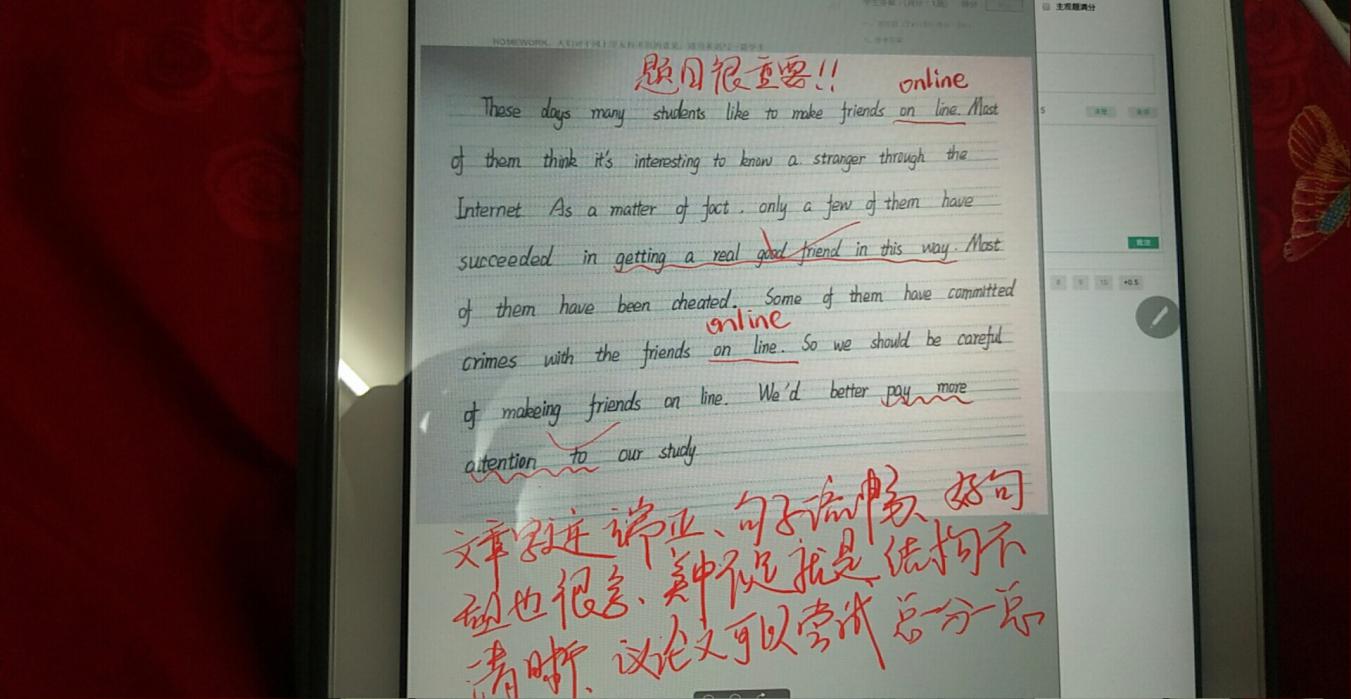 主观题满分
题目很重要!!
online
These days many students like to make friends on line. Most
of them think it's interesting to know a stranger through the
Internet As a matter of fact. only a few of them have
succeeded in getting a real good friend in this way. Most
of them have been cheated. Some of them have committed
online
crimes with the friends on line. So we should be careful
of makeing friends on line. We'd better pay more
attention to our study
文章字迹端正、句子流畅、好句
型也很多、美中不足就是、结构不
清晰、议论文可以尝试总一分一总
+0.5